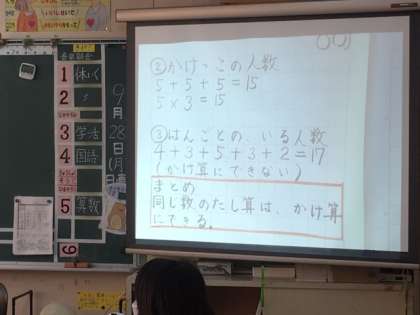 1 休いく
2 〃
3 学活
4 国語
5 算数
6
9月28日(月)
②かけっこの人数
5+5+5=15
5×3=15
③はんごとの、いる人数
4+3+5+3+2=17
(かけ算にできない)
まとめ
同じ数のたし算は、かけ算
にできる。